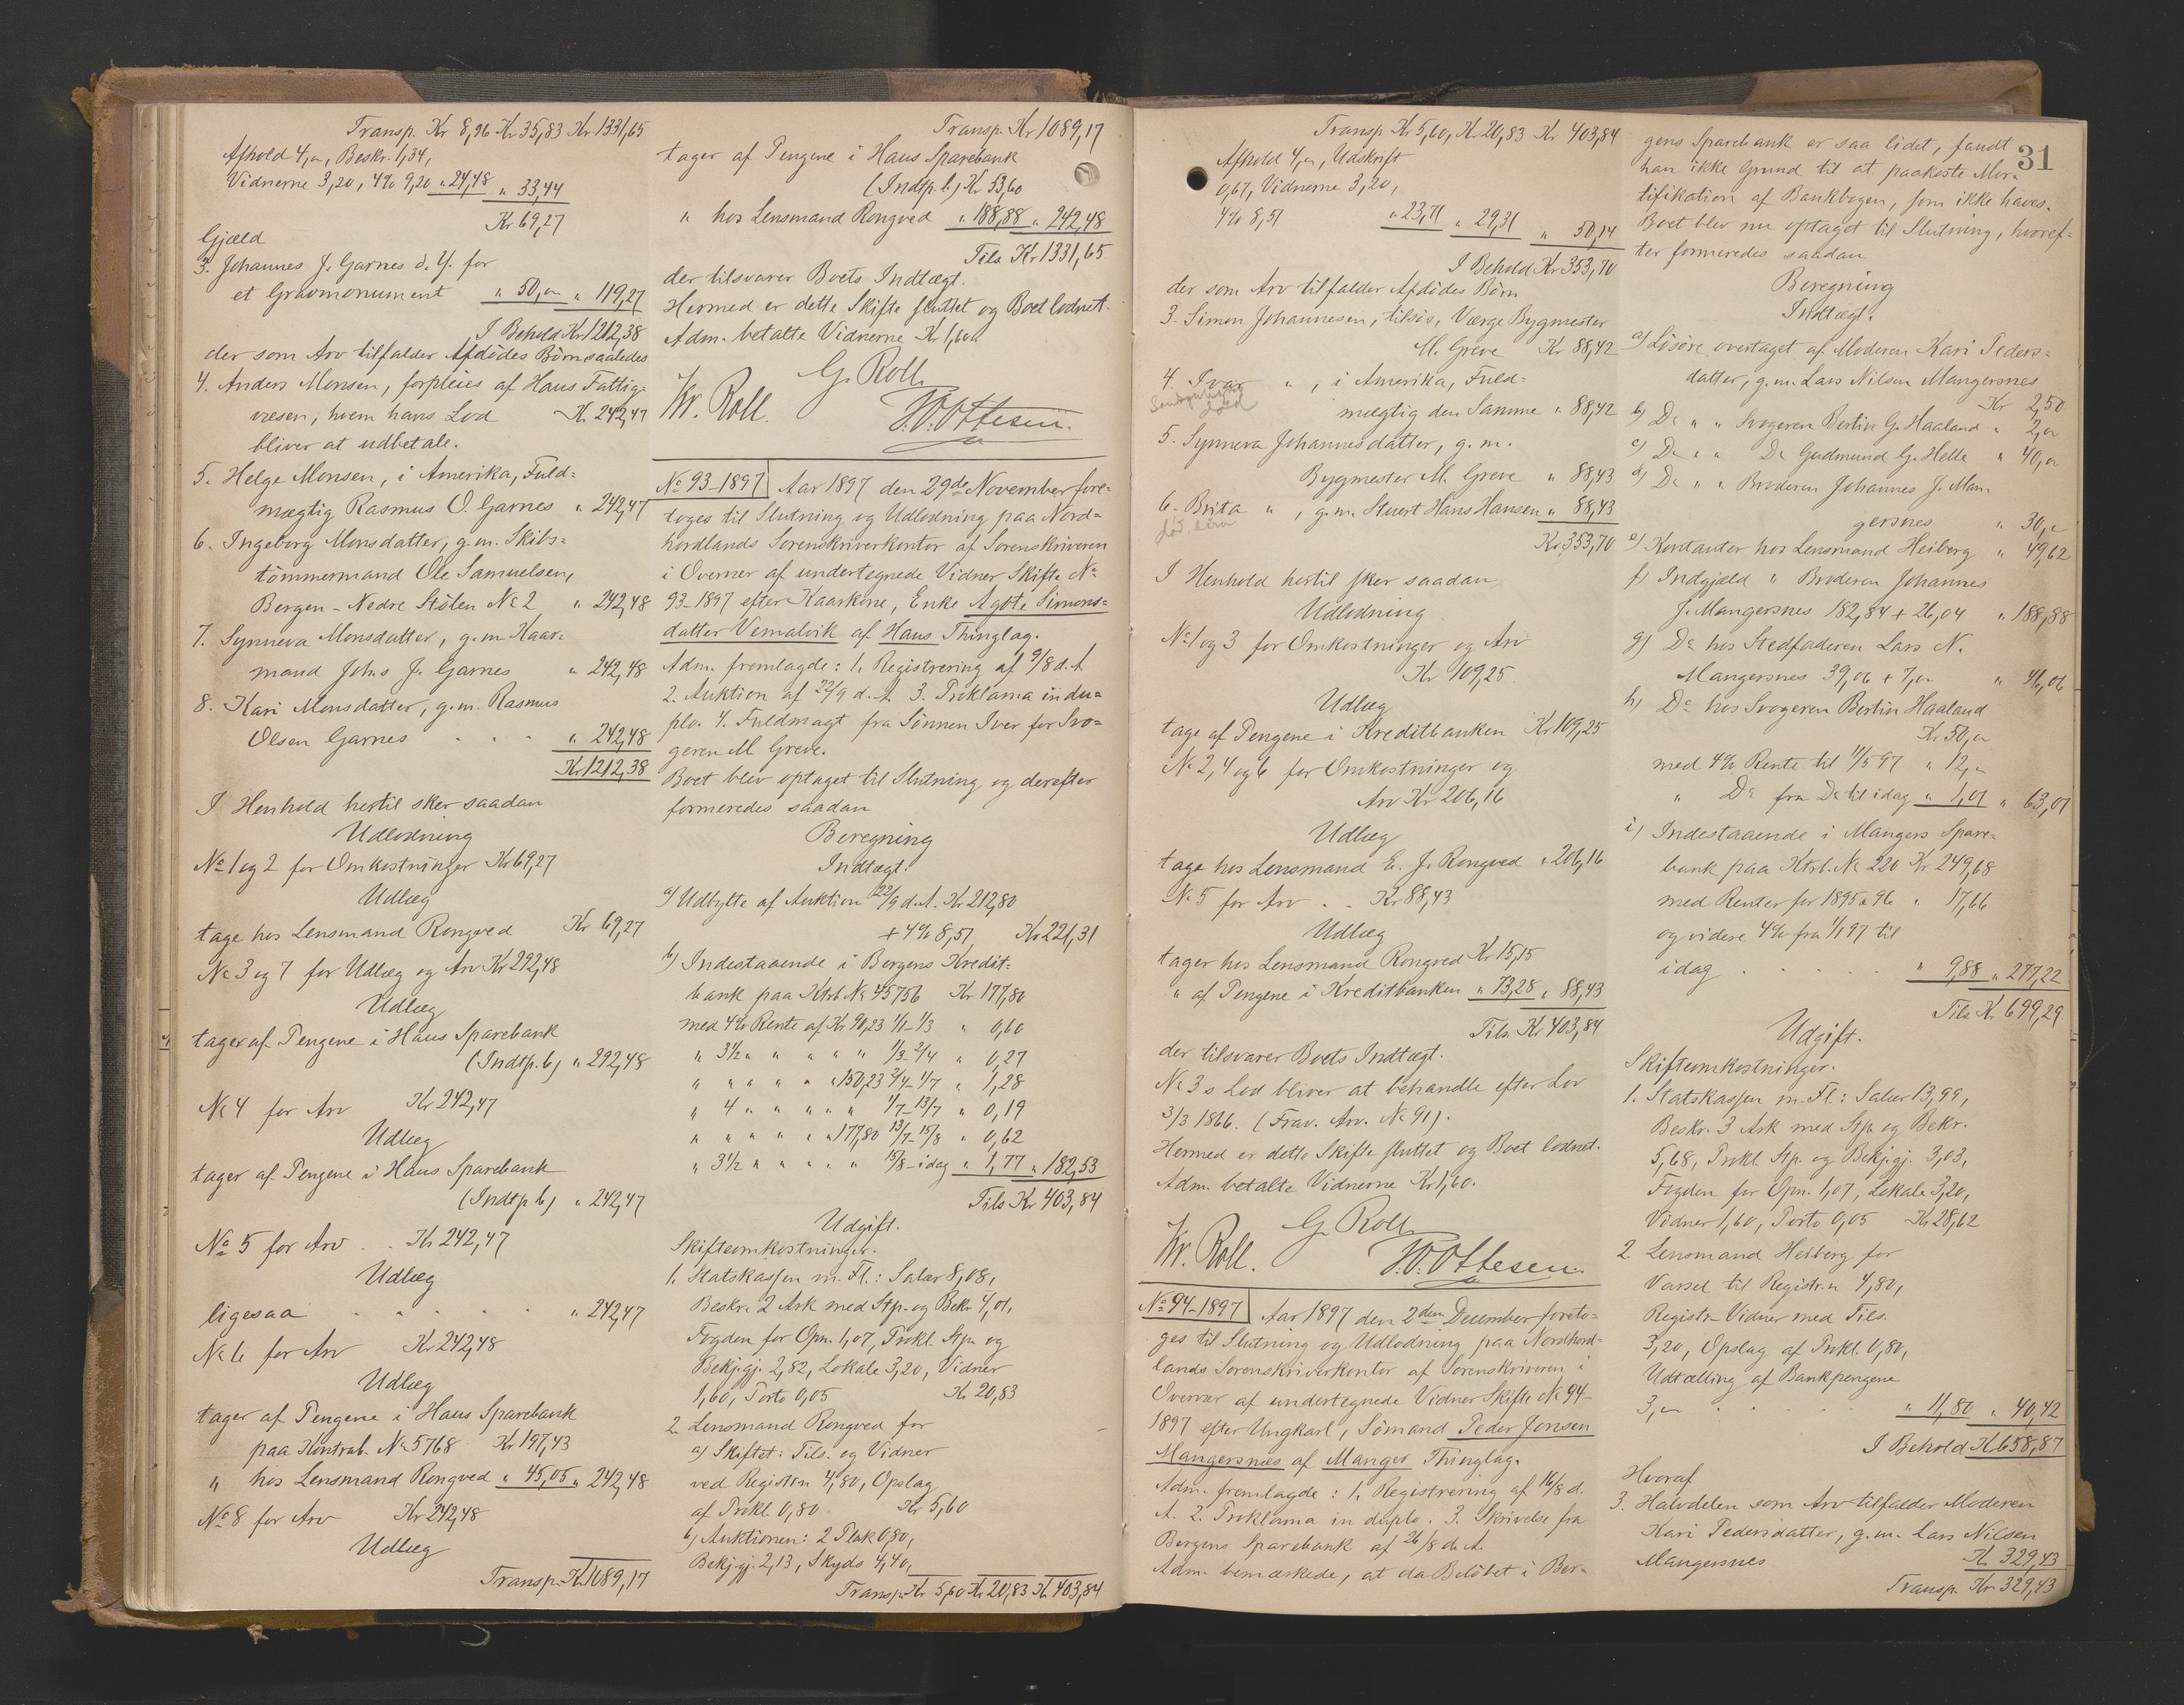 Transp. Kr 8,96 Kr 35,83 Kr 1331,65
Afhold 4,„, Beskr. 1,34,
Vidnerne 3,20, 4% 9,20 „ 24,48 „ 33,44
Kr 69,27
Gjæld
3. Johannes J. Garnes d. Y. for
et Gravmonument „ 50,„ „ 119,27
I Behold Kr 1212,38
der som Arv tilfalder Afdödes Börn saaledes
4. Anders Monsen, forpleies af Haus Fattig=
væsen, hvem hans Lod Kr. 242,47
bliver at udbetale.
5. Helge Monsen, i Amerika, Fuld=
mægtig Rasmus O. Garnes „ 242,47
6. Ingeborg Monsdatter, g. m. Skibs=
tömmermand Ole Samuelsen,
Bergen - Nedre Stölen No 2 „ 242,48
7. Synneva Monsdatter, g. m. Kaar=
mand Johs J. Garnes „ 242,48
8. Kari Monsdatter, g. m. Rasmus
Olsen Garnes . . . „ 242,48
Kr 1212,38
I Henhold hertil sker saadan
Udlodning
No 1 og 2 for Omkostninger Kr 69,27
Udlæg
tage hos Lensmand Rongved Kr 69,27
No 3 og 7 for Udlæg og Arv Kr 292,48
Udlæg
tager af Pengene i Haus Sparebank
(Indtp. b) „ 292,48
No 4 for Arv Kr 242,47
Udlæg
tager af Pengene i Haus Sparebank
(Indtp b) „ 242,47
No 5 for Arv . . Kr 242,47
Udlæg
ligesaa . . . . . „ 242,47
No 6 for Arv Kr 242,48
Udlæg
tager af Pengene i Haus Sparebank
paa Kontrab. No 5768 Kr 197,43
„ hos Lensmand Rongved „ 45,05 „ 242,48
No 8 for Arv Kr 242,48
Udlæg
Transp. Kr 1089,17
Transp. Kr 1089,17
tager af Pengene i Haus Sparebank
(Indtp. b) Kr 53,60
„ hos Lensmand Rongved „ 188,88 „ 242,48
Tils. Kr 1331,65
der tilsvarer Boets Indtægt.
Hermed er dette Skifte sluttet og Boet lodnet.
Adm. betalte Vidnerne Kr 1,60.
G. Roll
Kr. Roll. J. O. Ottesen.
No 93-1897 Aar 1897 den 29de November fore=
toges til Slutning og Udlodning paa Nord=
hordlands Sorenskriverkontor af Sorenskriveren
i Overvær af undertegnede Vidner Skifte No
93-1897 efter Kaarkone, Enke Agote Simons=
datter Vemalvik af Haus Thinglag.
Adm. fremlagde: 1. Registrering af 9/8 d. A
2. Auktion af 22/9 d. A. 3. Proklama in du=
plo. 4. Fuldmagt fra Sönnen Iver for Svo=
geren M. Greve.
Boet blev optaget til Slutning og derefter
formeredes saadan
Beregning
Indtægt.
a) Udbytte af Auktion 22/9 d. A. Kr 212,80
+ 4% 8,51 Kr 221,31
b) Indestaaende i Bergens Kredit=
bank paa Ktrb No 45756 Kr 177,80
med 4% Rente af Kr 90,23 1/1-1/3 „ 0,60
„ 3½ „ „ „ „ „ 1/3-2/4 „ 0,27
„ „ „ „ „ „ 150,23 2/4-1/7 „ 1,28
„ 4 „ „ „ „ „ 1/7-13/7 „ 0,19
„ „ „ „ „ „ 177,80 13/7-15/8 „ 0,62
„ 3½ „ „ „ „ „ 15/8-idag „ 1,77 „ 182,53
Tils Kr 403,84
Udgift.
Skifteomkostninger.
1. Statskassen m. Fl.: Salær 8,08,
Beskr. 2 Ark med Stp. og Bekr 4,01,
Fogden for Opn. 1,07, Prokl. Stp. og
Bekj.gj. 2,82, Lokale 3,20, Vidner
1,60, Porto 0,05 Kr 20,83
2. Lensmand Rongved for
a) Skiftet: Tils. og Vidner
ved Registrn 4,80, Opslag
af Prokl. 0,80 Kr 5,60
b) Auktionen: 2 Plak 0,80,
Bekj.gj. 2,13, Skyds 4,40,
Transp. Kr 5,60 Kr 20,83 Kr 403,84
Transp Kr 5,60, Kr 20,83 Kr 403,84
Afhold 4,„, Udskrift
0,67, Vidnerne 3,20,
4% 8,51 „ 23,71 „ 29,31 „ 50,14
I Behold Kr 353,70
der som Arv tilfalder Afdödes Börn
3. Simon Johannesen, tilsös, Værge Bygmester
M. Greve Kr 88,42
4. Ivar „ , i Amerika, Fuld=
mægtig den Samme „ 88,42
5. Synneva Johannesdatter, g. m.
Bygmester M. Greve „ 88,43
6. Brita „ , g. m. Stuert Hans Hansen „ 88,43
Kr 353,70
I Henhold hertil sker saadan
Udlodning
No 1 og 3 for Omkostninger og Arv
Kr 109,25
Udlæg
tage af Pengene i Kreditbanken Kr 109,25
No 2, 4 og 6 for Omkostninger og
Arv Kr 206,16
Udlæg
tage hos Lensmand E. J. Rongved „ 206,16
No 5 for Arv . . Kr 88,43
Udlæg
tager hos Lensmand Rongved Kr 15,15
„ af Pengene i Kreditbanken „ 73,28 „ 88,43
Tils. Kr 403,84
der tilsvarer Boets Indtægt.
No 3s Lod bliver at behandle efter Lov
3/3 1866. (Frav. Arv. No 91).
Hermed er dette Skifte sluttet og Boet lodnet.
Adm. betalte Vidnerne Kr 1,60.
G. Roll
Kr. Roll. J. O. Ottesen.
No 94-1897 Aar 1897 den 2den December foreto=
ges til Slutning og Udlodning paa Nordhord=
lands Sorenskriverkontor af Sorenskriveren i
Overvær af undertegnede Vidner Skifte No 94-
1897 efter Ungkarl, Sömand Peder Jonsen
Mangersnæs af Manger Thinglag.
Adm. fremlagde: 1. Registrering af 16/8 d.
A. 2. Proklama in duplo. 3. Skrivelse fra
Bergens Sparebank af 26/8 d. A.
Adm. bemærkede, at da Belöbet i Ber=
31
gens Sparebank er saa lidet, fandt
han ikke Grund til at paakoste Mor=
tifikation af Bankbogen, som ikke haves.
Boet blev nu optaget til Slutning, hvoref=
ter formeredes saadan
Beregning
Indtægt.
a) Lösöre overtaget af Moderen Kari Peders=
datter, g. m. Lars Nilsen Mangersnes
Kr 2,50
b) Do „ „ Svogeren Bertin G. Haaland „ 2,„
c) Do „ „ Do Gudmund G. Helle „ 40,„
d) Do „ „ Broderen Johannes J. Man=
gersnes „ 30,„
e) Kontanter hos Lensmand Heiberg „ 49,62
f) Indgjæld „ Broderen Johannes
J. Mangersnes 182,84 + 26,04 „ 188,88
g) Do hos Stedfaderen Lars N.
Mangersnes 39,06 + 7,„ „ 46,06
h) Do hos Svogeren Bertin Haaland
Kr 50,„
med 4% Rente til 11/5 97 „ 12,„
„ Do fra Do til idag „ 1,01 „ 63,01
i) Indestaaende i Mangers Spare=
bank paa Ktrb. No 220 Kr 249,68
med Renter for 1895 & 96 „ 17,66
og videre 4% fra 1/1 97 til
idag . . . . . „ 9,88 „ 277,22
Tils. Kr 699,29
Udgift.
Skifteomkostninger.
1. Statskassen m. Fl.: Salær 13,99,
Beskr. 3 Ark med Stp. og Bekr.
5,68, Prokl. Stp. og Bekj.gj. 3,03,
Fogden for Opn. 1,07, Lokale 3,20,
Vidner 1,60, Porto 0,05 Kr 28,62
2. Lensmand Heiberg for
Varsel til Registr.n 4,80,
Registr. Vidner med Tils.
3,20, Opslag af Prokl. 0,80,
Udtælling af Bankpengene
3,„ . . . . „ 11,80 „ 40,42
I Behold Kr 658,87
Hvoraf
3. Halvdelen som Arv tilfalder Moderen
Kari Pedersdatter, g. m. Lars Nilsen
Mangersnes Kr. 329,43
Transp. Kr 329,43